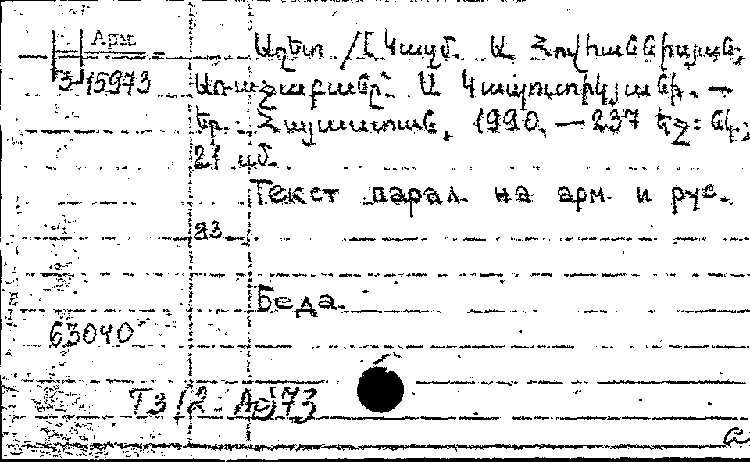 Арм
3-15973
Աղետ /[Կազմ. Ա. Հովհաննիսյան;
Առաջաբանը՝ Ս. Կապուտիկյանի. —
Եր.: Հայաստան, 1990. — 237 էջ: նկ.;
21 սմ.
Текст парал. на арм. и рус.
яз.
Беда.
63040